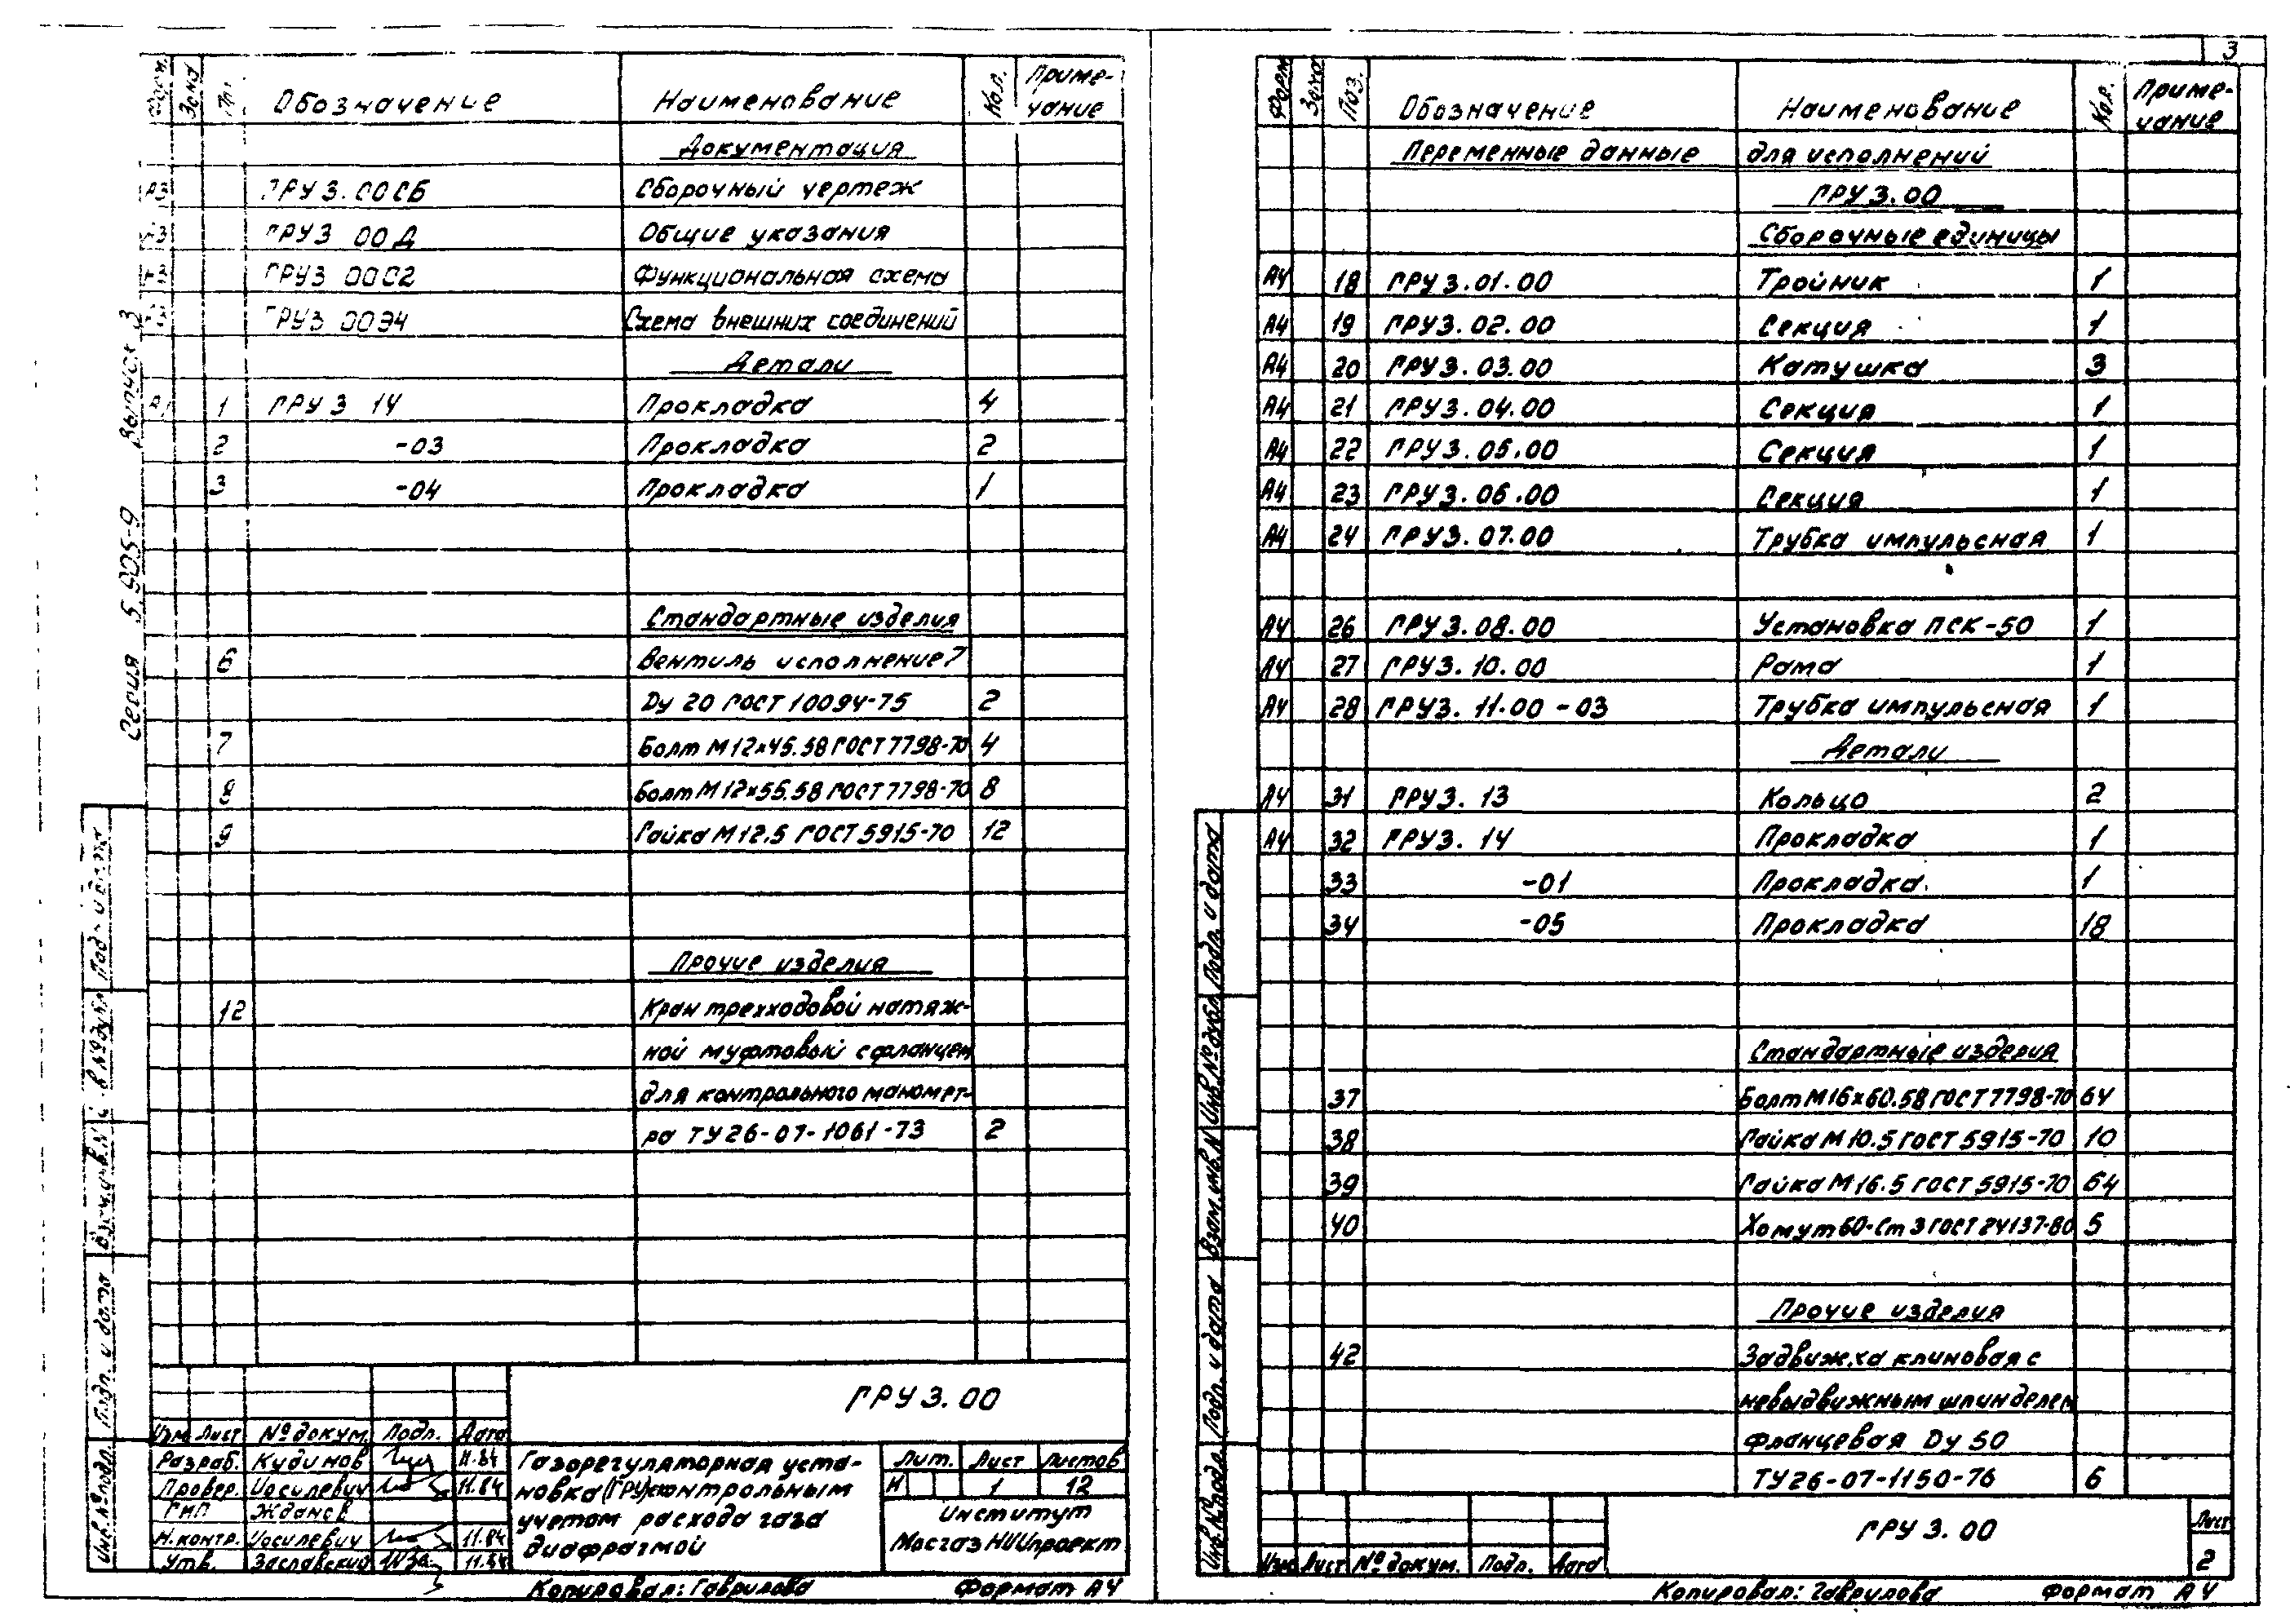 3
Серия 5.905-9 Выпуск 3
Зона Обозначение Наименование Кол. Примечание
Документация
А3 ГРУ 3.00СБ Сборочный чертеж
ГРУ 3 00 Д Общие указания
ГРУ 3 00С2 Функциональная схема
ГРУ 3 00Э4 Схема внешних соединений
Детали
1 ГРУ 3 14 Прокладка 4
2 -03 Прокладка 2
3 -04 Прокладка 1
Стандартные изделия
6 Вентиль исполнение 7
Dу 20 ГОСТ 10094-75 2
7 Болт М12×45.58 ГОСТ 7798-70 4
8 Болт М12×55.58 ГОСТ 7798-70 8
9 Гайка М12.5 ГОСТ 5915-70 12
Прочие изделия
12 Кран трехходовой натяж-
ной муфтовый с фланцем
для контрольного маномет-
ра ТУ 26-07-1061-73 2
ГРУ 3.00
Изм Лист № докум. Подп. Дата
Разраб. Кудинов 11.84
Провер. Иосилевич 11.84
ГИП Жданов
Н.контр. Иосилевич 11.84
Утв. Заславский 11.84
Газорегуляторная уста-
новка (ГРУ) с контрольным
учетом расхода газа
диафрагмой
Лит. Лист Листов
И 1 12
Институт
МосгазНИИпроект
Копировал: Гаврилова Формат А4
Инв.№ подл. Подп. и дата Взам.инв.N Инв.№ дубл Подп. и дата
Форм Зона Поз. Обозначение Наименование Кол. Приме-
чание
Переменные данные для исполнений
ГРУ 3.00
Сборочные единицы
А4 18 ГРУ 3.01.00 Тройник 1
А4 19 ГРУ 3.02.00 Секция 1
А4 20 ГРУ 3.03.00 Катушка 3
А4 21 ГРУ 3.04.00 Секция 1
А4 22 ГРУ 3.05.00 Секция 1
А4 23 ГРУ 3.06.00 Секция 1
А4 24 ГРУ 3.07.00 Трубка импульсная 1
А4 26 ГРУ 3.08.00 Установка ПСК-50 1
А4 27 ГРУ 3.10.00 Рама 1
А4 28 ГРУ 3.11.00-03 Трубка импульсная 1
Детали
А4 31 ГРУ 3.13 Кольцо 2
А4 32 ГРУ 3.14 Прокладка 1
33 -01 Прокладка 1
34 -05 Прокладка 18
Стандартные изделия
37 Болт М16×60.58 ГОСТ 7798-70 64
38 Гайка М10.5 ГОСТ 5915-70 10
39 Гайка М16.5 ГОСТ 5915-70 64
40 Хомут 60-Ст 3 ГОСТ 24137-80 5
Прочие изделия
42 Задвижка клиновая с
невыдвижным шпинделем
фланцевая Dу 50
ТУ 26-07-1150-76 6
Инв.№ подл. Подп. и дата Взам.инв.N Инв.№ дубл Подп. и дата
Изм Лист № докум. Подп. Дата
ГРУ 3.00
Лист
2
Копировал: Гаврилова Формат А4